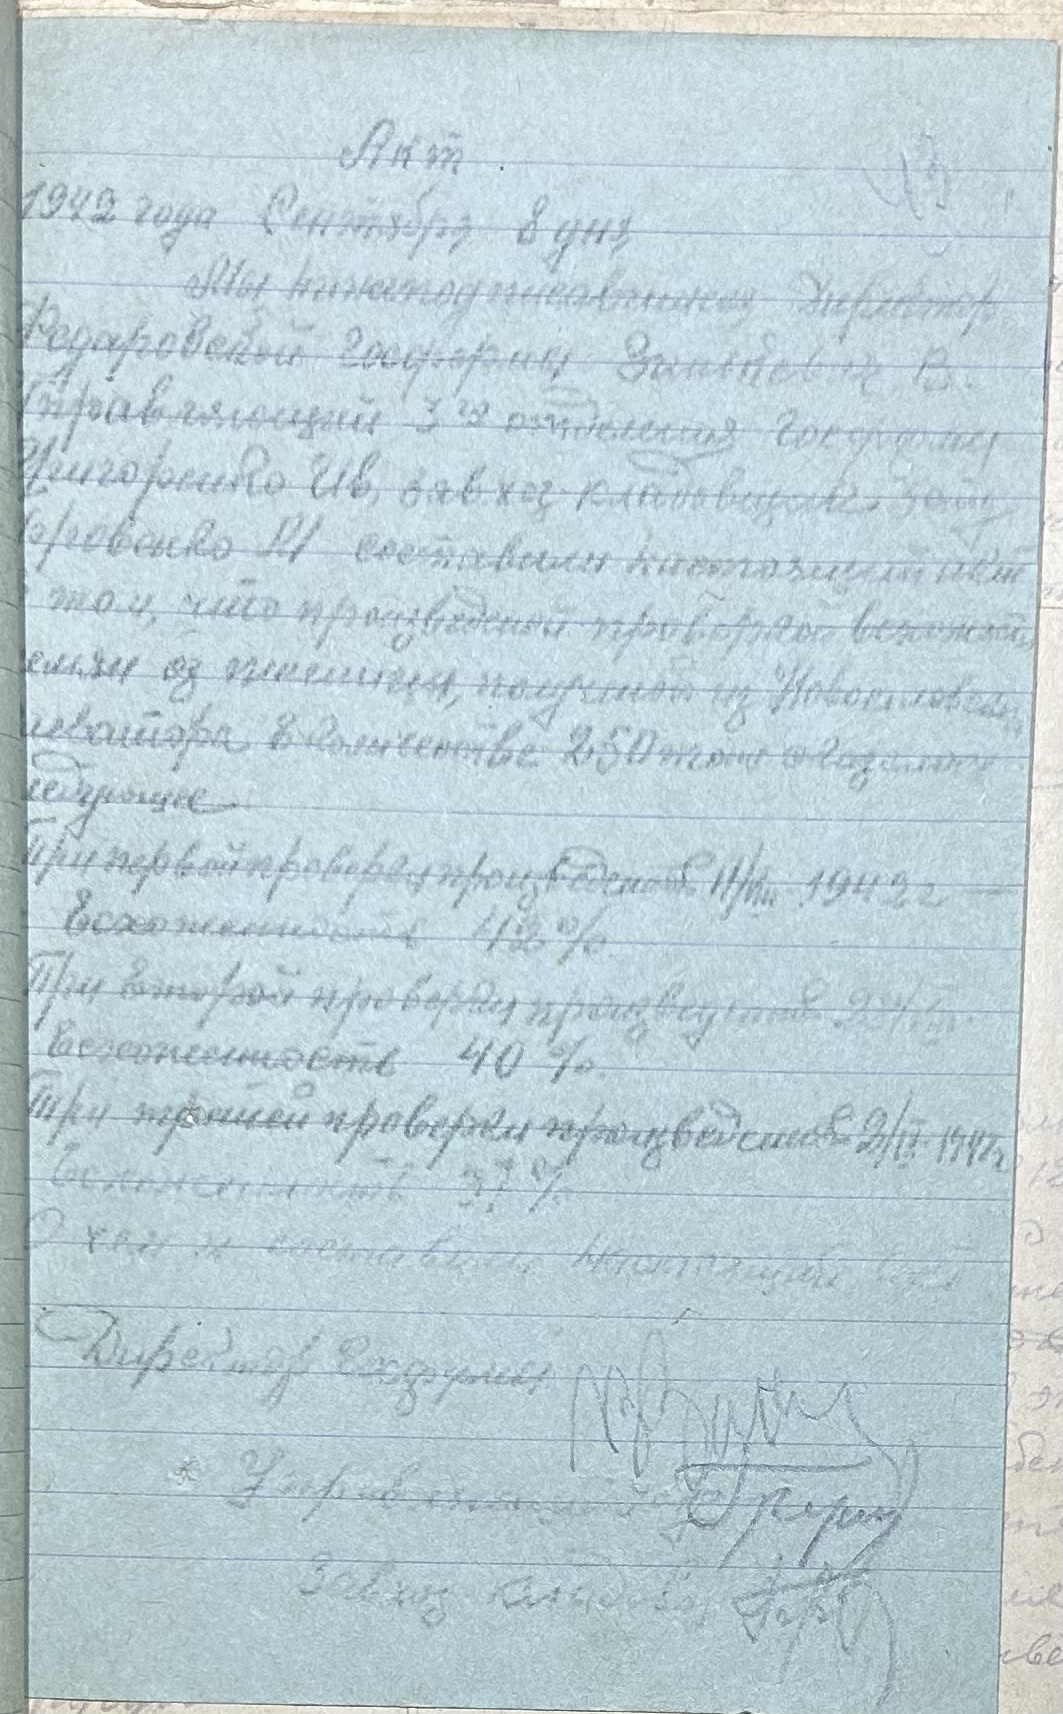 Акт
1942 года Сентября 8 дня
Мы нижеподписавшиеся Директор
Федаровской Госфермы В.
Управляющий 3го отделения Госфермы
Григоренко Ив, завхоз кладовщик
составили настоящий акт
том, что произведеной проверкой всхожести
семян оз пшеницы, получной из
элеватора в количестве 250 тонн оказалось
ледующее
При первой проверки произведенной 11/VIII 1942 г
Всхоженность 42%.
При второй проверки произведеной 22/VIII
Всхоженность 40%.
При третей проверки произведеной 2/IX 1942г
Всхоженность 37%
О чем и составили настоящий акт
Директор Госфермы
Управляющий
Завхоз кладов.